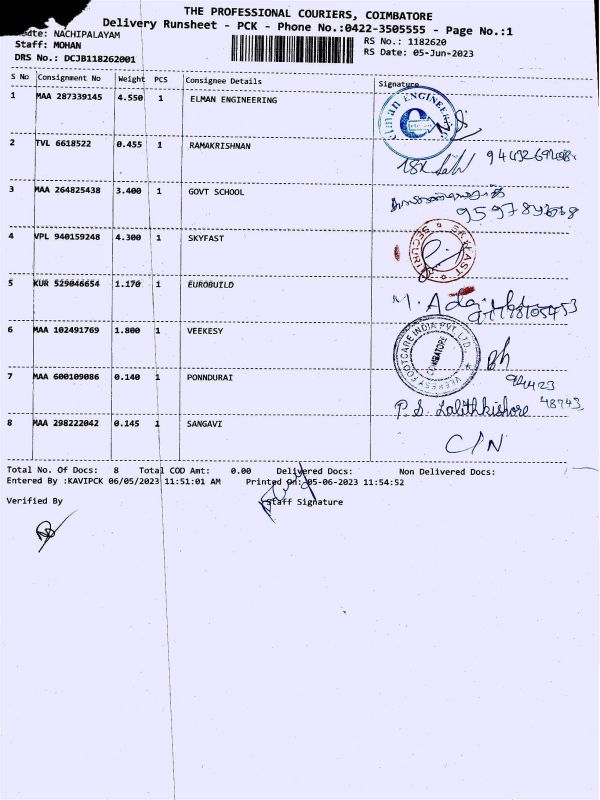 THE PROFESSIONAL COURIERS, COIMBATORE
Delivery Runsheet - PCK - Phone No.:0422-3505555 - Page No.:1
NACHIPALAYAM
Staff: MOHAN
DRS No.: DCJB118262001
RS No.: 1182620
RS Date: 05-Jun-2023
S No Consignment No Weight PCS Consignee Details Signature
1 MAA 287339145 4.550 1 ELMAN ENGINEERING
2 TVL 6618522 0.455 1 RAMAKRISHNAN
3 MAA 264825438 3.400 1 GOVT SCHOOL
4 VPL 940159248 4.300 1 SKYFAST
5 KUR 529046654 1.170 1 EUROBUILD
6 MAA 102491769 1.800 1 VEEKESY
VEEKESY FOOTCARE INDIA PVT. LTD. COIMBATORE
7 MAA 600109086 0.140 1 PONNDURAI
P.S. Lalithkishore
8 MAA 298222042 0.145 1 SANGAVI C/N
Total No. Of Docs: 8 Total COD Amt: 0.00 Delivered Docs: Non Delivered Docs:
Entered By :KAVIPCK 06/05/2023 11:51:01 AM Printed On: 05-06-2023 11:54:52
Verified By Staff Signature